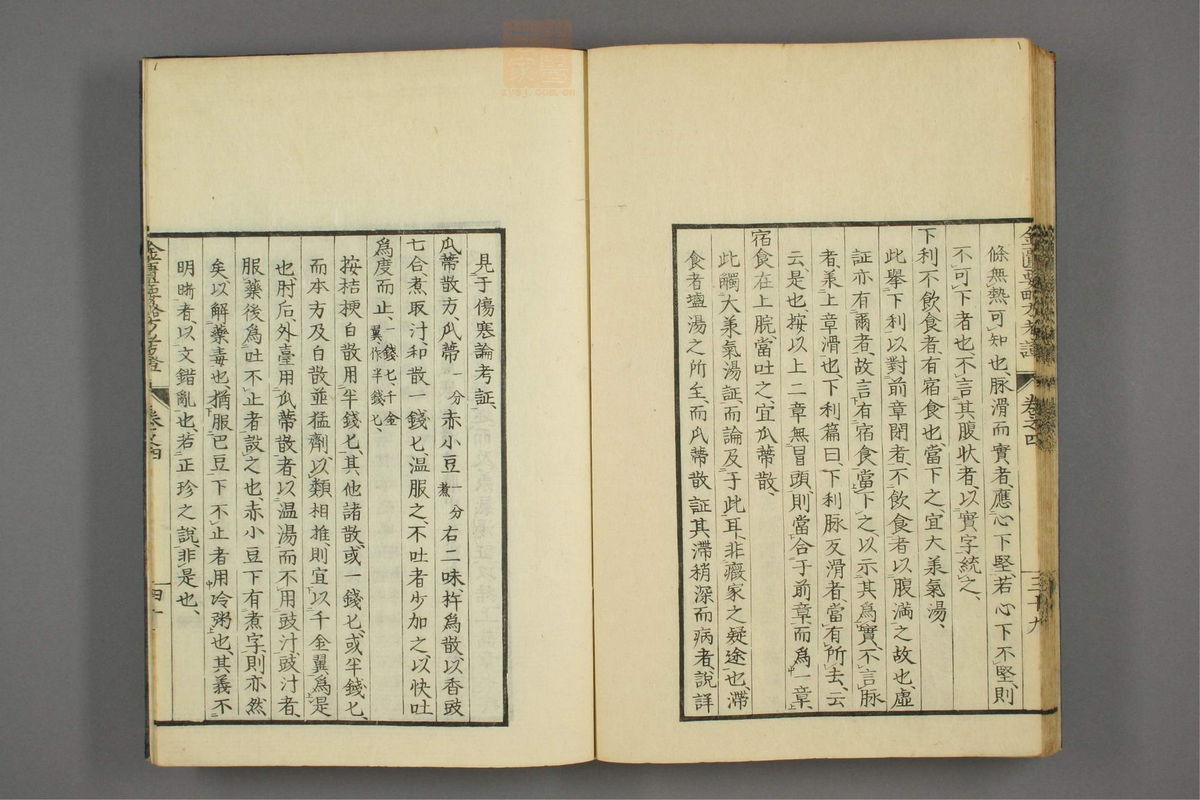 條無熱可知也、脉滑而實者、應心下堅、若心下不堅、則
不可下者也、不言其腹狀者、以實字統之、
下利不飲食者、有宿食也、當下之、宜大羕氣湯、
此舉下利以對前章閉者、不飲食者、以腹満之故也、虛
証亦有爾者、故言有宿食當下之、以示其爲實、不言脉
者、羕上章滑也、下利篇曰、下利脉反滑者、當有所去、云
云、是也、按以上二章無冒頭則當合于前章而爲一章、
宿食在上脘、當吐之、宜瓜蒂散、
此觸大羕氣湯証、而論及于此耳、非癥家之疑途也、滯
食者塩湯之所主、而瓜蒂散証其滯稍深而病者、說詳
卷之四
三十九
見于傷寒論考証、
瓜蒂散方、瓜蒂一分赤小豆一分煮右二味、杵爲散、以香豉
七合、煮取汁、和散一錢匕、温服之、不吐者少加之、以快吐
爲度而止、一錢匕、千金翼、作半錢匕、
按桔梗白散用半錢匕、其他諸散、或一錢匕、或半錢匕、
而本方及白散並猛劑、以類相推、則宜以千金翼爲是
也、肘后、外臺用瓜蒂散者、以温湯而不用豉汁、豉汁者、
服藥後爲吐不止者設之也、赤小豆下有煮字、則亦然
矣、以解藥毒也、猶服巴豆下不止者用冷粥也、其義不
明晰者、以文錯亂也、若正珍之說、非是也、
卷之四
四十
zysj.com.cn